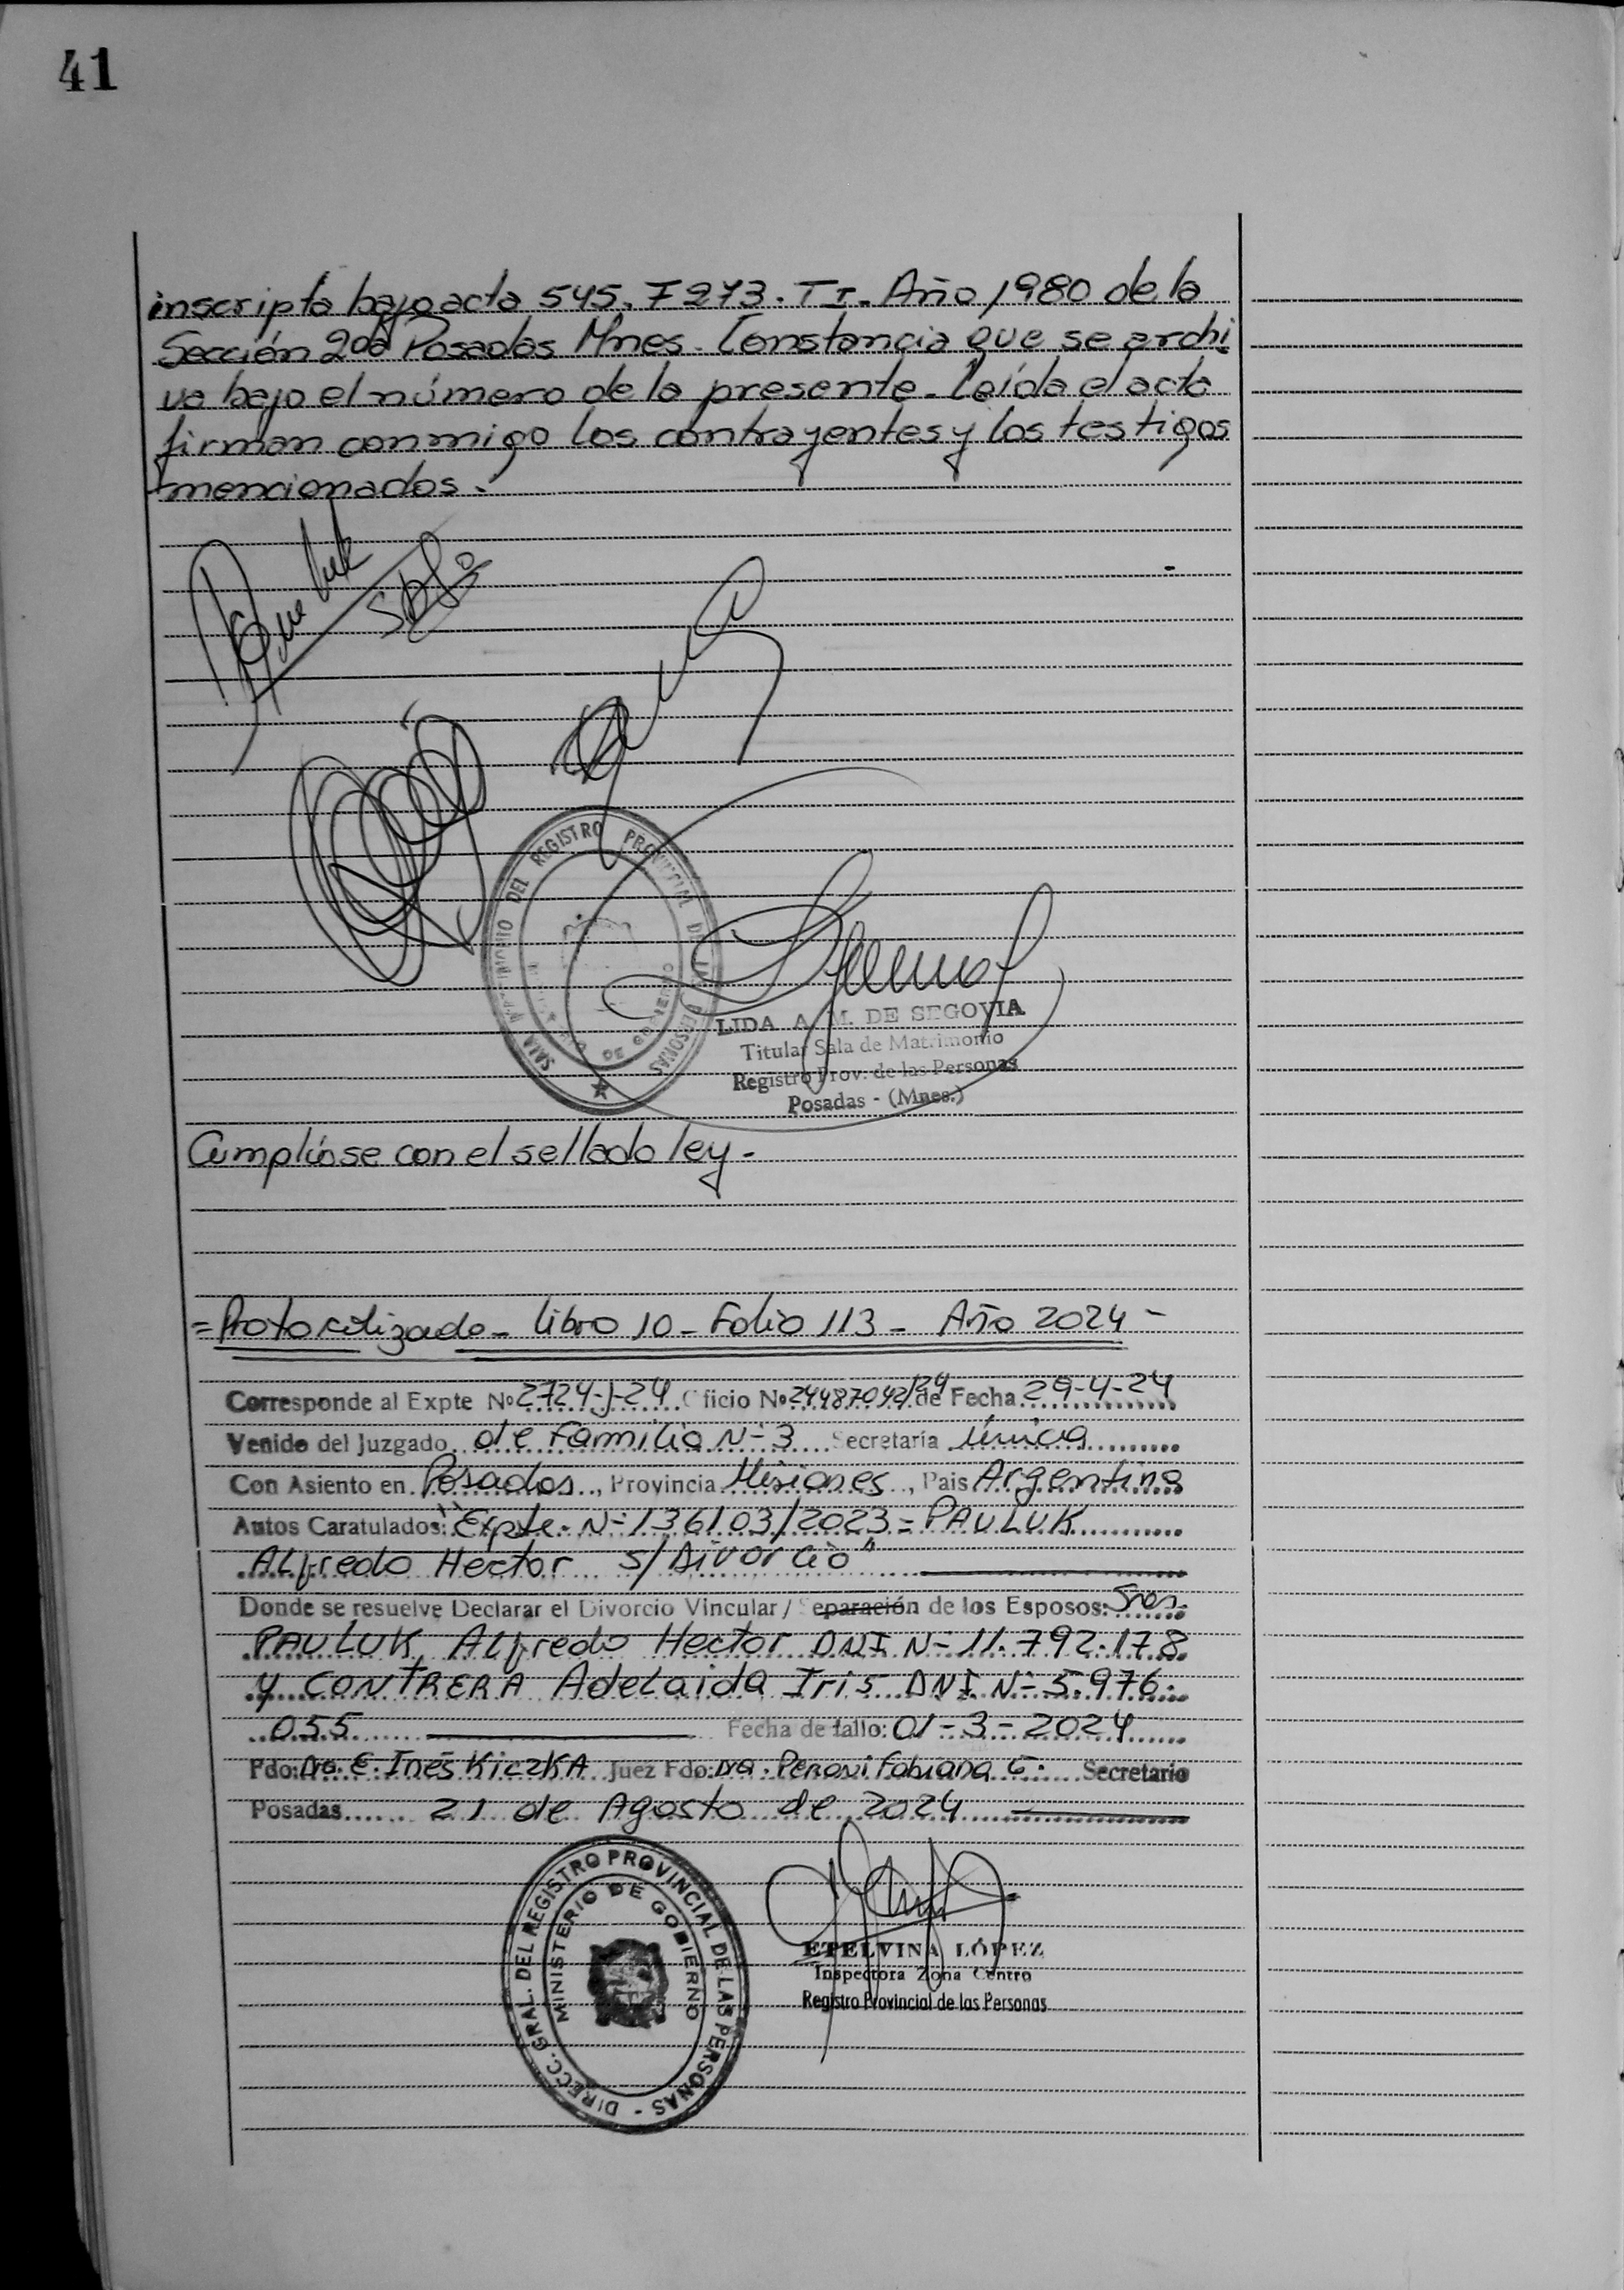 41
inscripta bajo acta 545. F 273. T I. Año 1980 de la
Sección 2da Posadas Mnes. Constancia que se archi
va bajo el número de la presente. Leída el acta
firman conmigo los contrayentes y los testigos
mencionados.
SALA MATRIMONIO DEL REGISTRO PROVINCIAL DE LAS PERSONAS
LIDA A. M. DE SEGOVIA
Titular Sala de Matrimonio
Registro Prov. de las Personas
Posadas - (Mnes.)
Cumpliose con el sellado ley.
= Protocolizado - Libro 10 - Folio 113 - Año 2024 -
Corresponde al Expte Nº 2724-J-24 Oficio Nº 24487042/24 de Fecha 29-4-24
Venido del Juzgado de Familia Nº 3 Secretaría única
Con Asiento en Posadas, Provincia Misiones, Pais Argentina
Autos Caratulados: "Expte. Nº 136103/2023 = PAULUK
Alfredo Hector s/ Divorcio"
Donde se resuelve Declarar el Divorcio Vincular / Separación de los Esposos: Sres.
PAULUK Alfredo Hector DNI Nº 11.792.178
y CONTRERA Adelaida Iris DNI Nº 5.976.
055 Fecha de fallo: 01-3-2024
Fdo: Dra. E. Inés KiczKA Juez Fdo: Dra. Peroni Fabiana G. Secretario
Posadas 21 de Agosto de 2024
DIRECC. GRAL. DEL REGISTRO PROVINCIAL DE LAS PERSONAS -
MINISTERIO DE GOBIERNO
ETELVINA LÓPEZ
Inspectora Zona Centro
Registro Provincial de las Personas